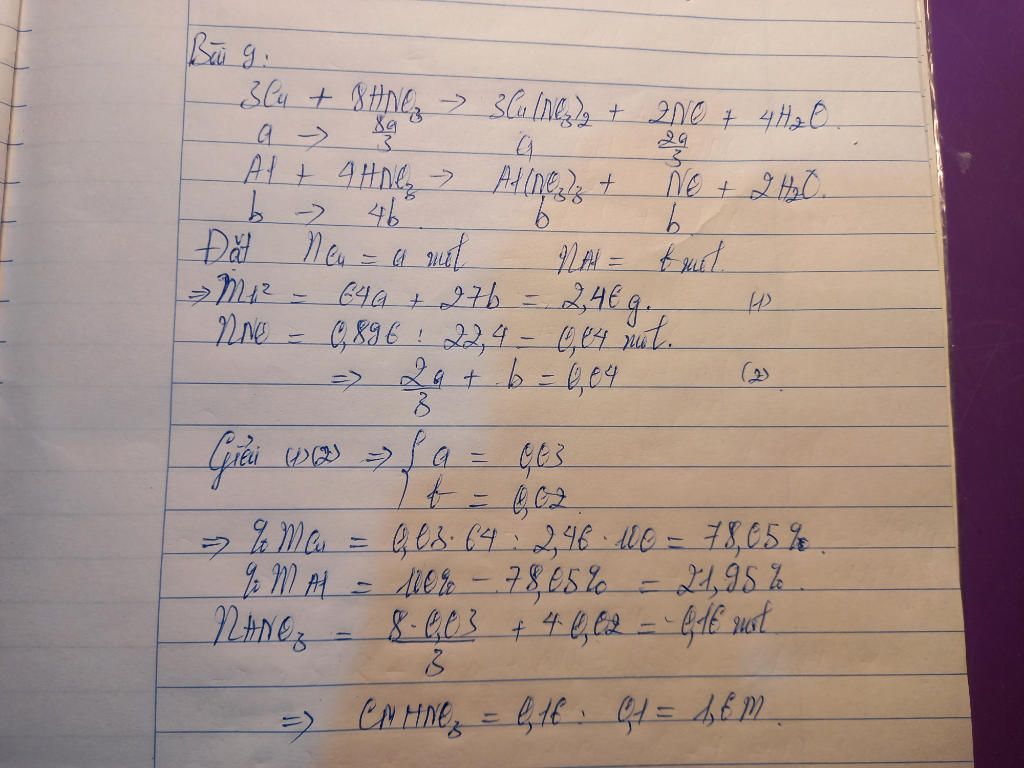 Bài 9:
3Cu + 8HNO3 → 3Cu(NO3)2 + 2NO + 4H2O.
a → 8a/3 a 2a/3
Al + 4HNO3 → Al(NO3)3 + NO + 2H2O.
b → 4b b b
Đặt nCu = a mol nAl = b mol.
⇒ mh² = 64a + 27b = 2,46g. (1)
nNO = 0,896 : 22,4 = 0,04 mol.
⇒ 2a/3 + b = 0,04 (2)
Giải (1)(2) ⇒ { a = 0,03
b = 0,02
⇒ % mCu = 0,03·64 : 2,46·100 = 78,05%.
% mAl = 100% - 78,05% = 21,95%.
nHNO3 = 8·0,03/3 + 4·0,02 = 0,16 mol
⇒ CM HNO3 = 0,16 : 0,1 = 1,6M.